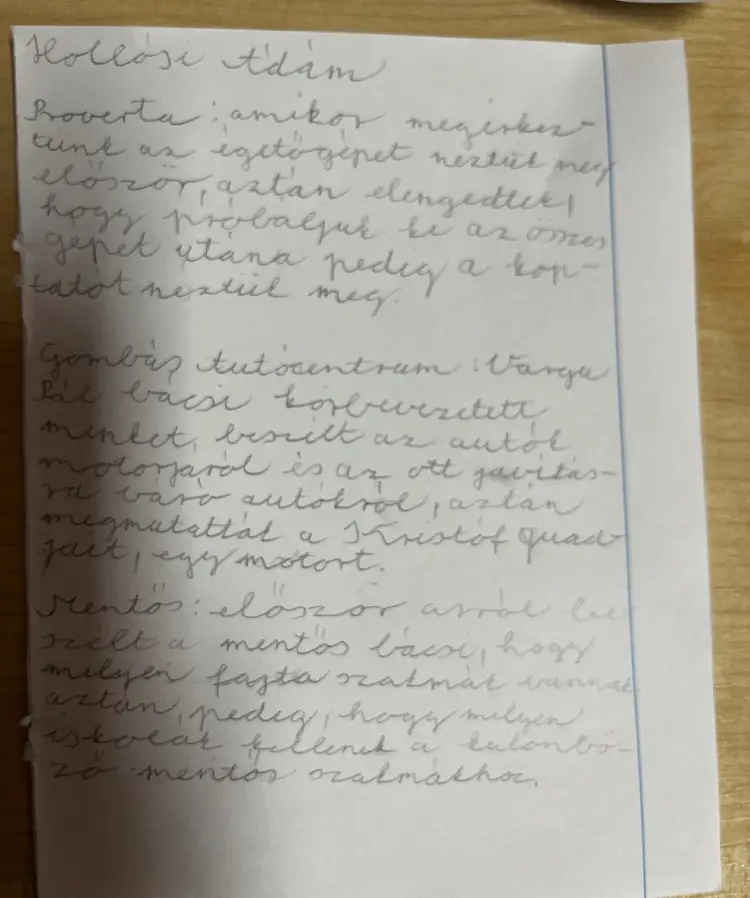 Hollósi Ádám
Proverta : amikor megérkez-
tünk az égetőgépet néztük meg
először, aztán elengedtek,
hogy próbáljuk ki az összes
gépet utána pedig a kop-
tatót néztük meg.
Gombás Autócentrum : Varga
Pál bácsi körbevezetett
minket, beszélt az autók
motorjáról és az ott javítás-
ra váró autókról, aztán
megmutatták a Kristóf quad-
jait, egy motort.
Mentős : először arról be
szélt a mentős bácsi, hogy
milyen fajta szakmák vannak
aztán, pedig, hogy milyen
iskolák kellenek a különbö-
ző mentős szakmákhoz.